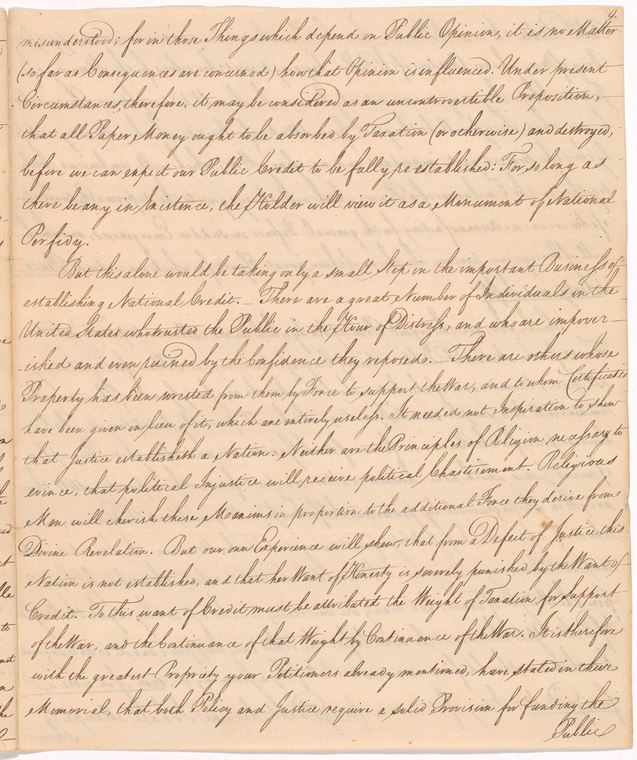 9.
misunderstood; for in those Things which depend on Public Opinion, it is no Matter
(so far as Consequences are concerned) how that Opinion is influenced. Under present
Circumstances, therefore, it may be considered as an uncontrovertible Proposition,
that all Paper Money ought to be absorbed by Taxation (or otherwise) and destroyed,
before we can expect our Public Credit to be fully re established: For so long as
there be any in Existence, the Holder will view it as a Monument of National
Perfidy.
But this alone would be taking only a small Step in the important Business of
establishing National Credit. — There are a great Number of Individuals in the
United States who trusted the Public in the Hour of Distress, and who are impover-
ished and even ruined by the Confidence they reposed. — There are others whose
Property has been wrested from them by Force to support the War, and to whom Certificates
have been given in lieu of it, which are entirely useless. It needed not Inspiration to shew
that Justice establisheth a Nation: Neither are the Principles of Religion necessary to
evince, that political Injustice will receive political Chastisement. Religious
Men will cherish these Maxims in proportion to the additional Force they derive from
Divine Revelation. But our own Experience will shew, that from a Defect of Justice this
Nation is not established, and that her Want of Honesty is severely punished by the Want of
Credit. To this want of Credit must be attributed the Weight of Taxation for support
of the War, and the Continuance of that Weight by Continuance of the War. It is therefore
with the greatest Propriety your Petitioners already mentioned, have stated in their
Memorial, that both Policy and Justice require a solid Provision for funding the
Public